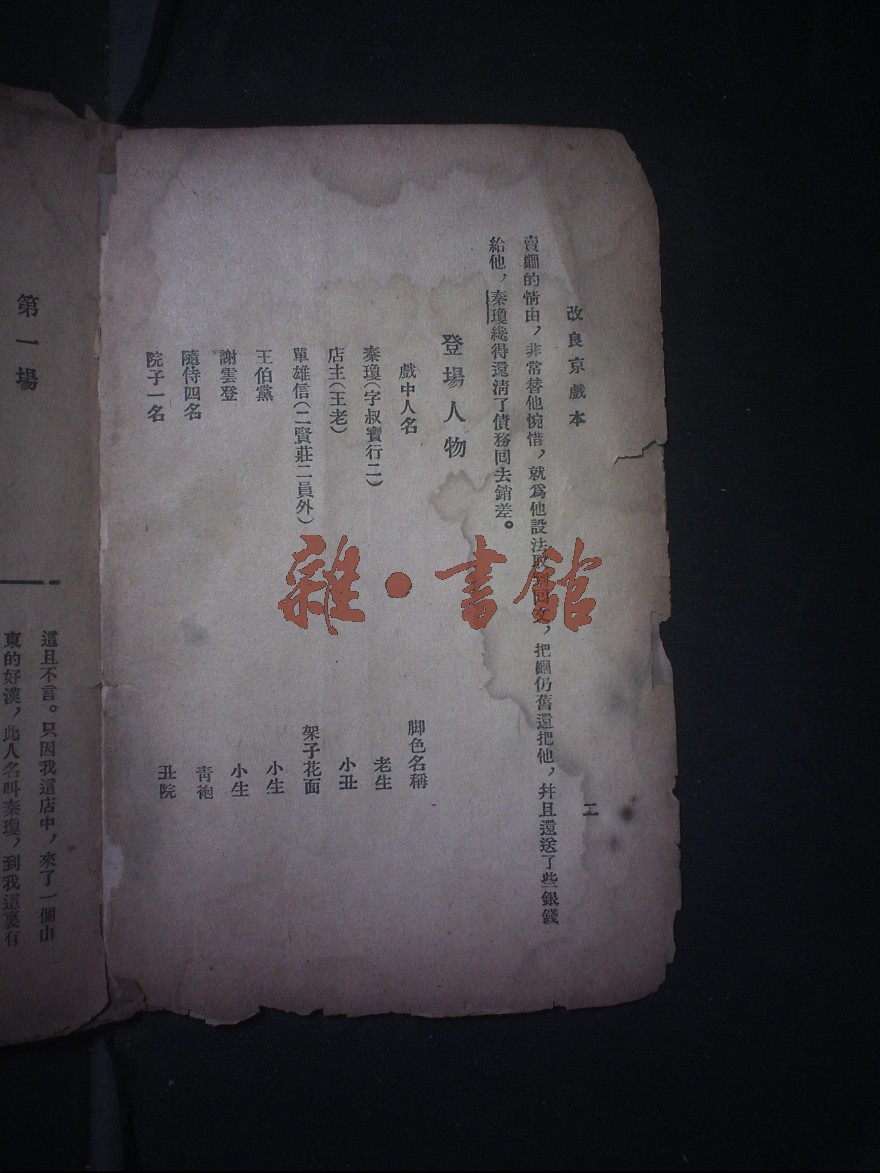 改良京戲本
二
賣鐧的情由，非常替他惋惜，就爲他設法取到回文，把鐧仍舊還把他，幷且還送了些銀錢
給他，秦瓊纔得還淸了債務回去銷差。
登場人物
戲中人名 脚色名稱
秦瓊（字叔寶行二） 老生
店主（王老） 小丑
單雄信（二賢莊二員外） 架子花面
王伯黨 小生
謝雲登 小生
隨侍四名 靑袍
院子一名 丑院
第一場
這且不言。只因我這店中，來了一個山
東的好漢，此人名叫秦瓊，到我這裏有
雜·書館